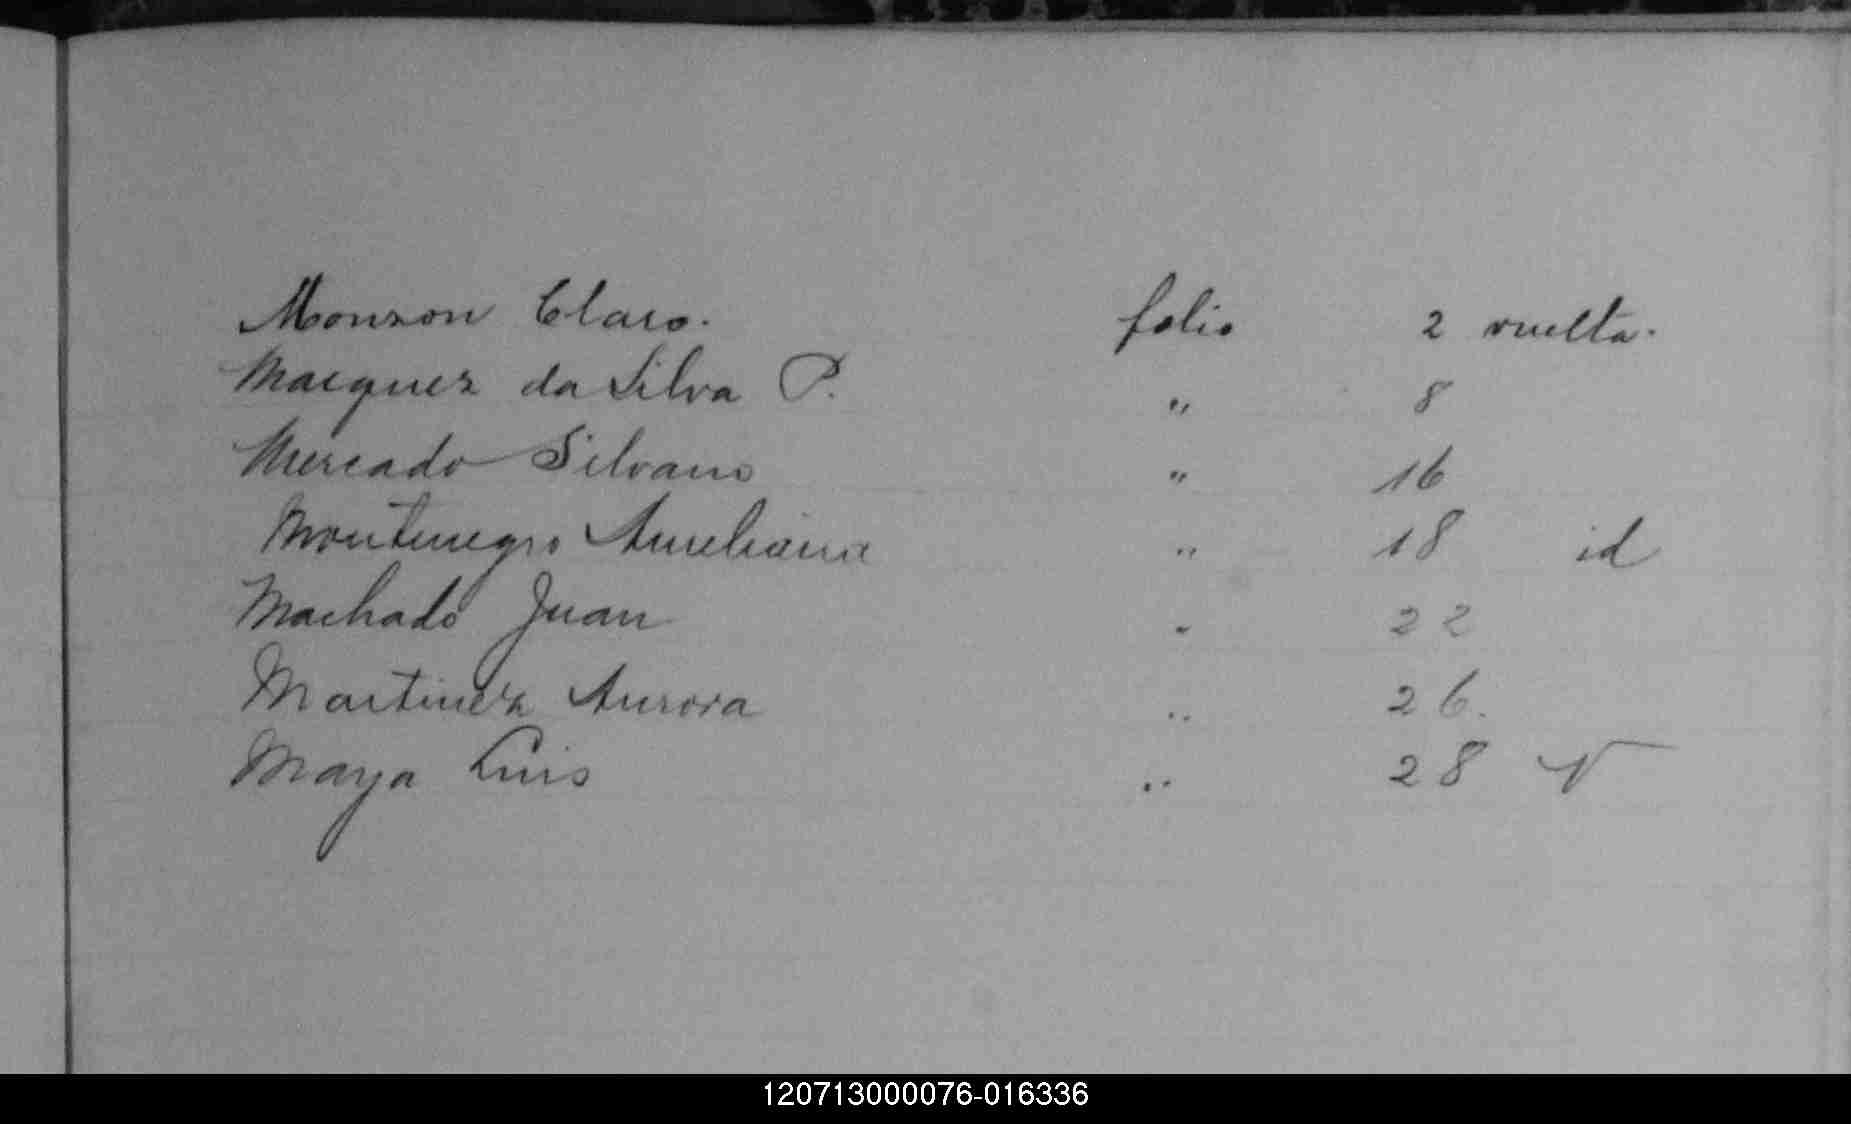 Monzon Claro. folio 2 vuelta.
Marquez da Silva P. " 8
Mercado Silvano " 16
Montenegro Aureliana " 18 id
Machado Juan " 22
Martinez Aurora " 26.
Maya Luis " 28 V
120713000076-016336